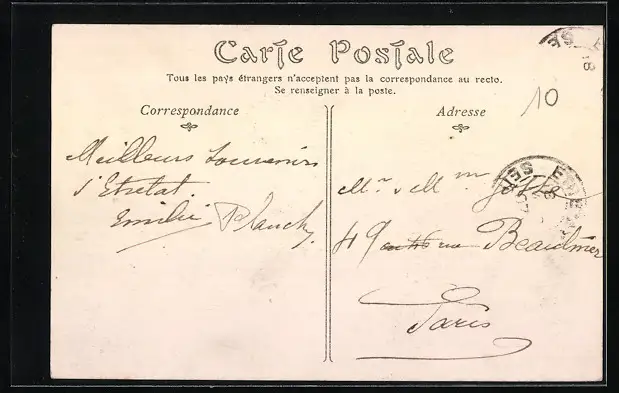 Carte Postale
Tous les pays étrangers n'acceptent pas la correspondance au recto.
Se renseigner à la poste.
10
Correspondance
Adresse
Meilleurs souvenirs
d'Etretat.
Emilie Planch
Mr & Mm
49 rue
Paris